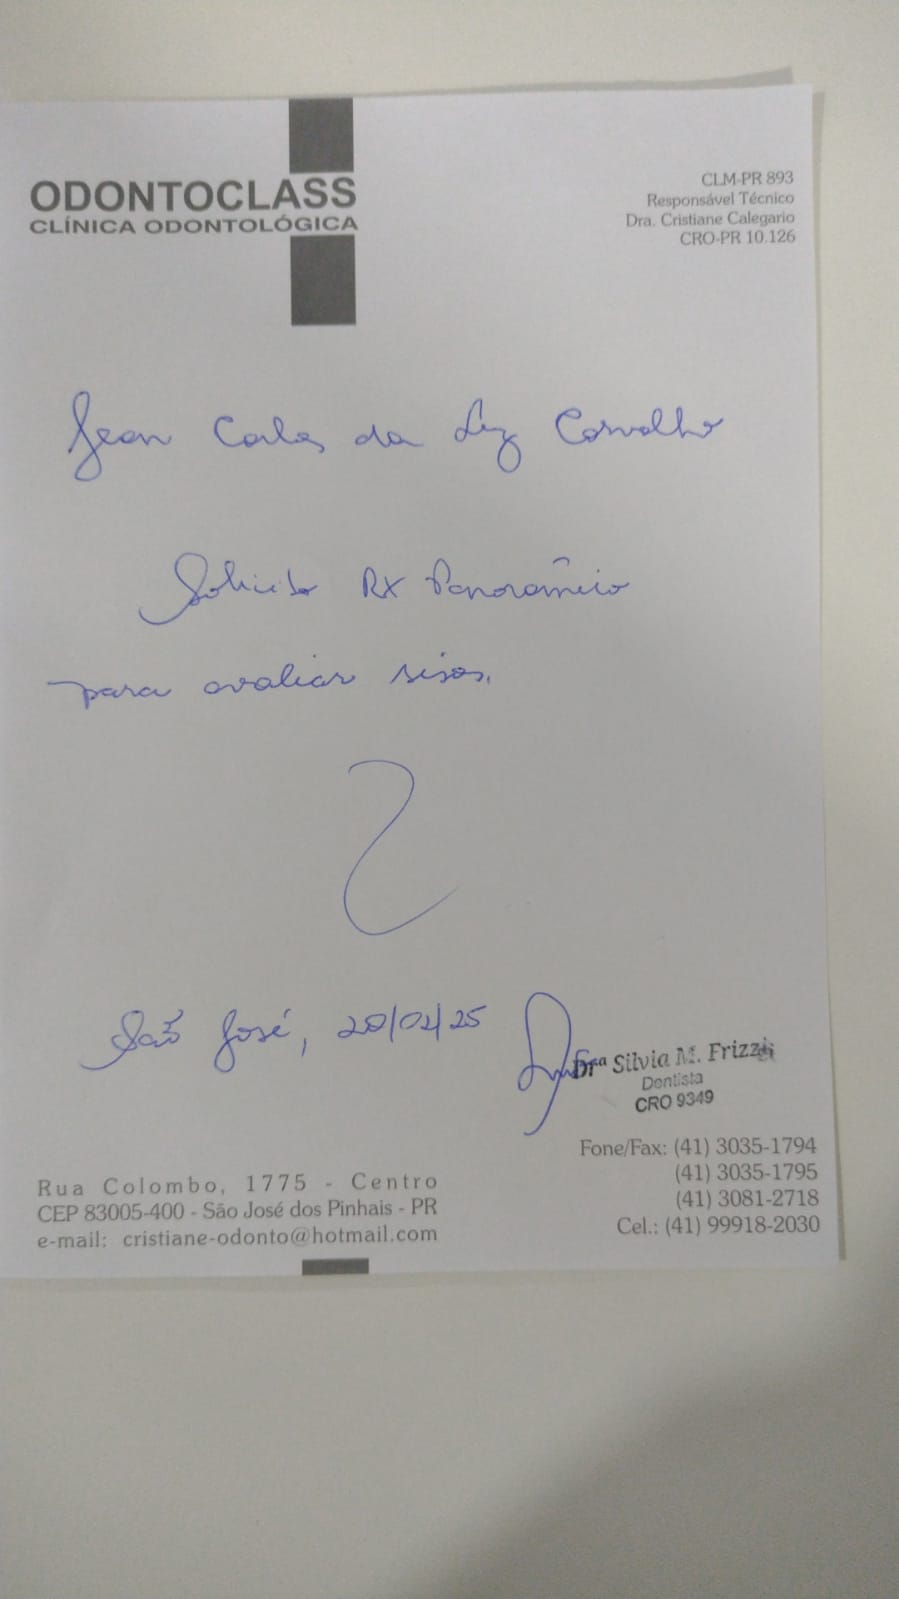 ODONTOCLASS
CLÍNICA ODONTOLÓGICA
CLM-PR 893
Responsável Técnico
Dra. Cristiane Calegario
CRO-PR 10.126
Jean Carlos da Luz Carvalho
Solicito RX Panorâmico
para avaliar sisos.
São José, 20/02/25
Drª Silvia M. Frizzo
Dentista
CRO 9349
Rua Colombo, 1775 - Centro
CEP 83005-400 - São José dos Pinhais - PR
e-mail: cristiane-odonto@hotmail.com
Fone/Fax: (41) 3035-1794
(41) 3035-1795
(41) 3081-2718
Cel.: (41) 99918-2030